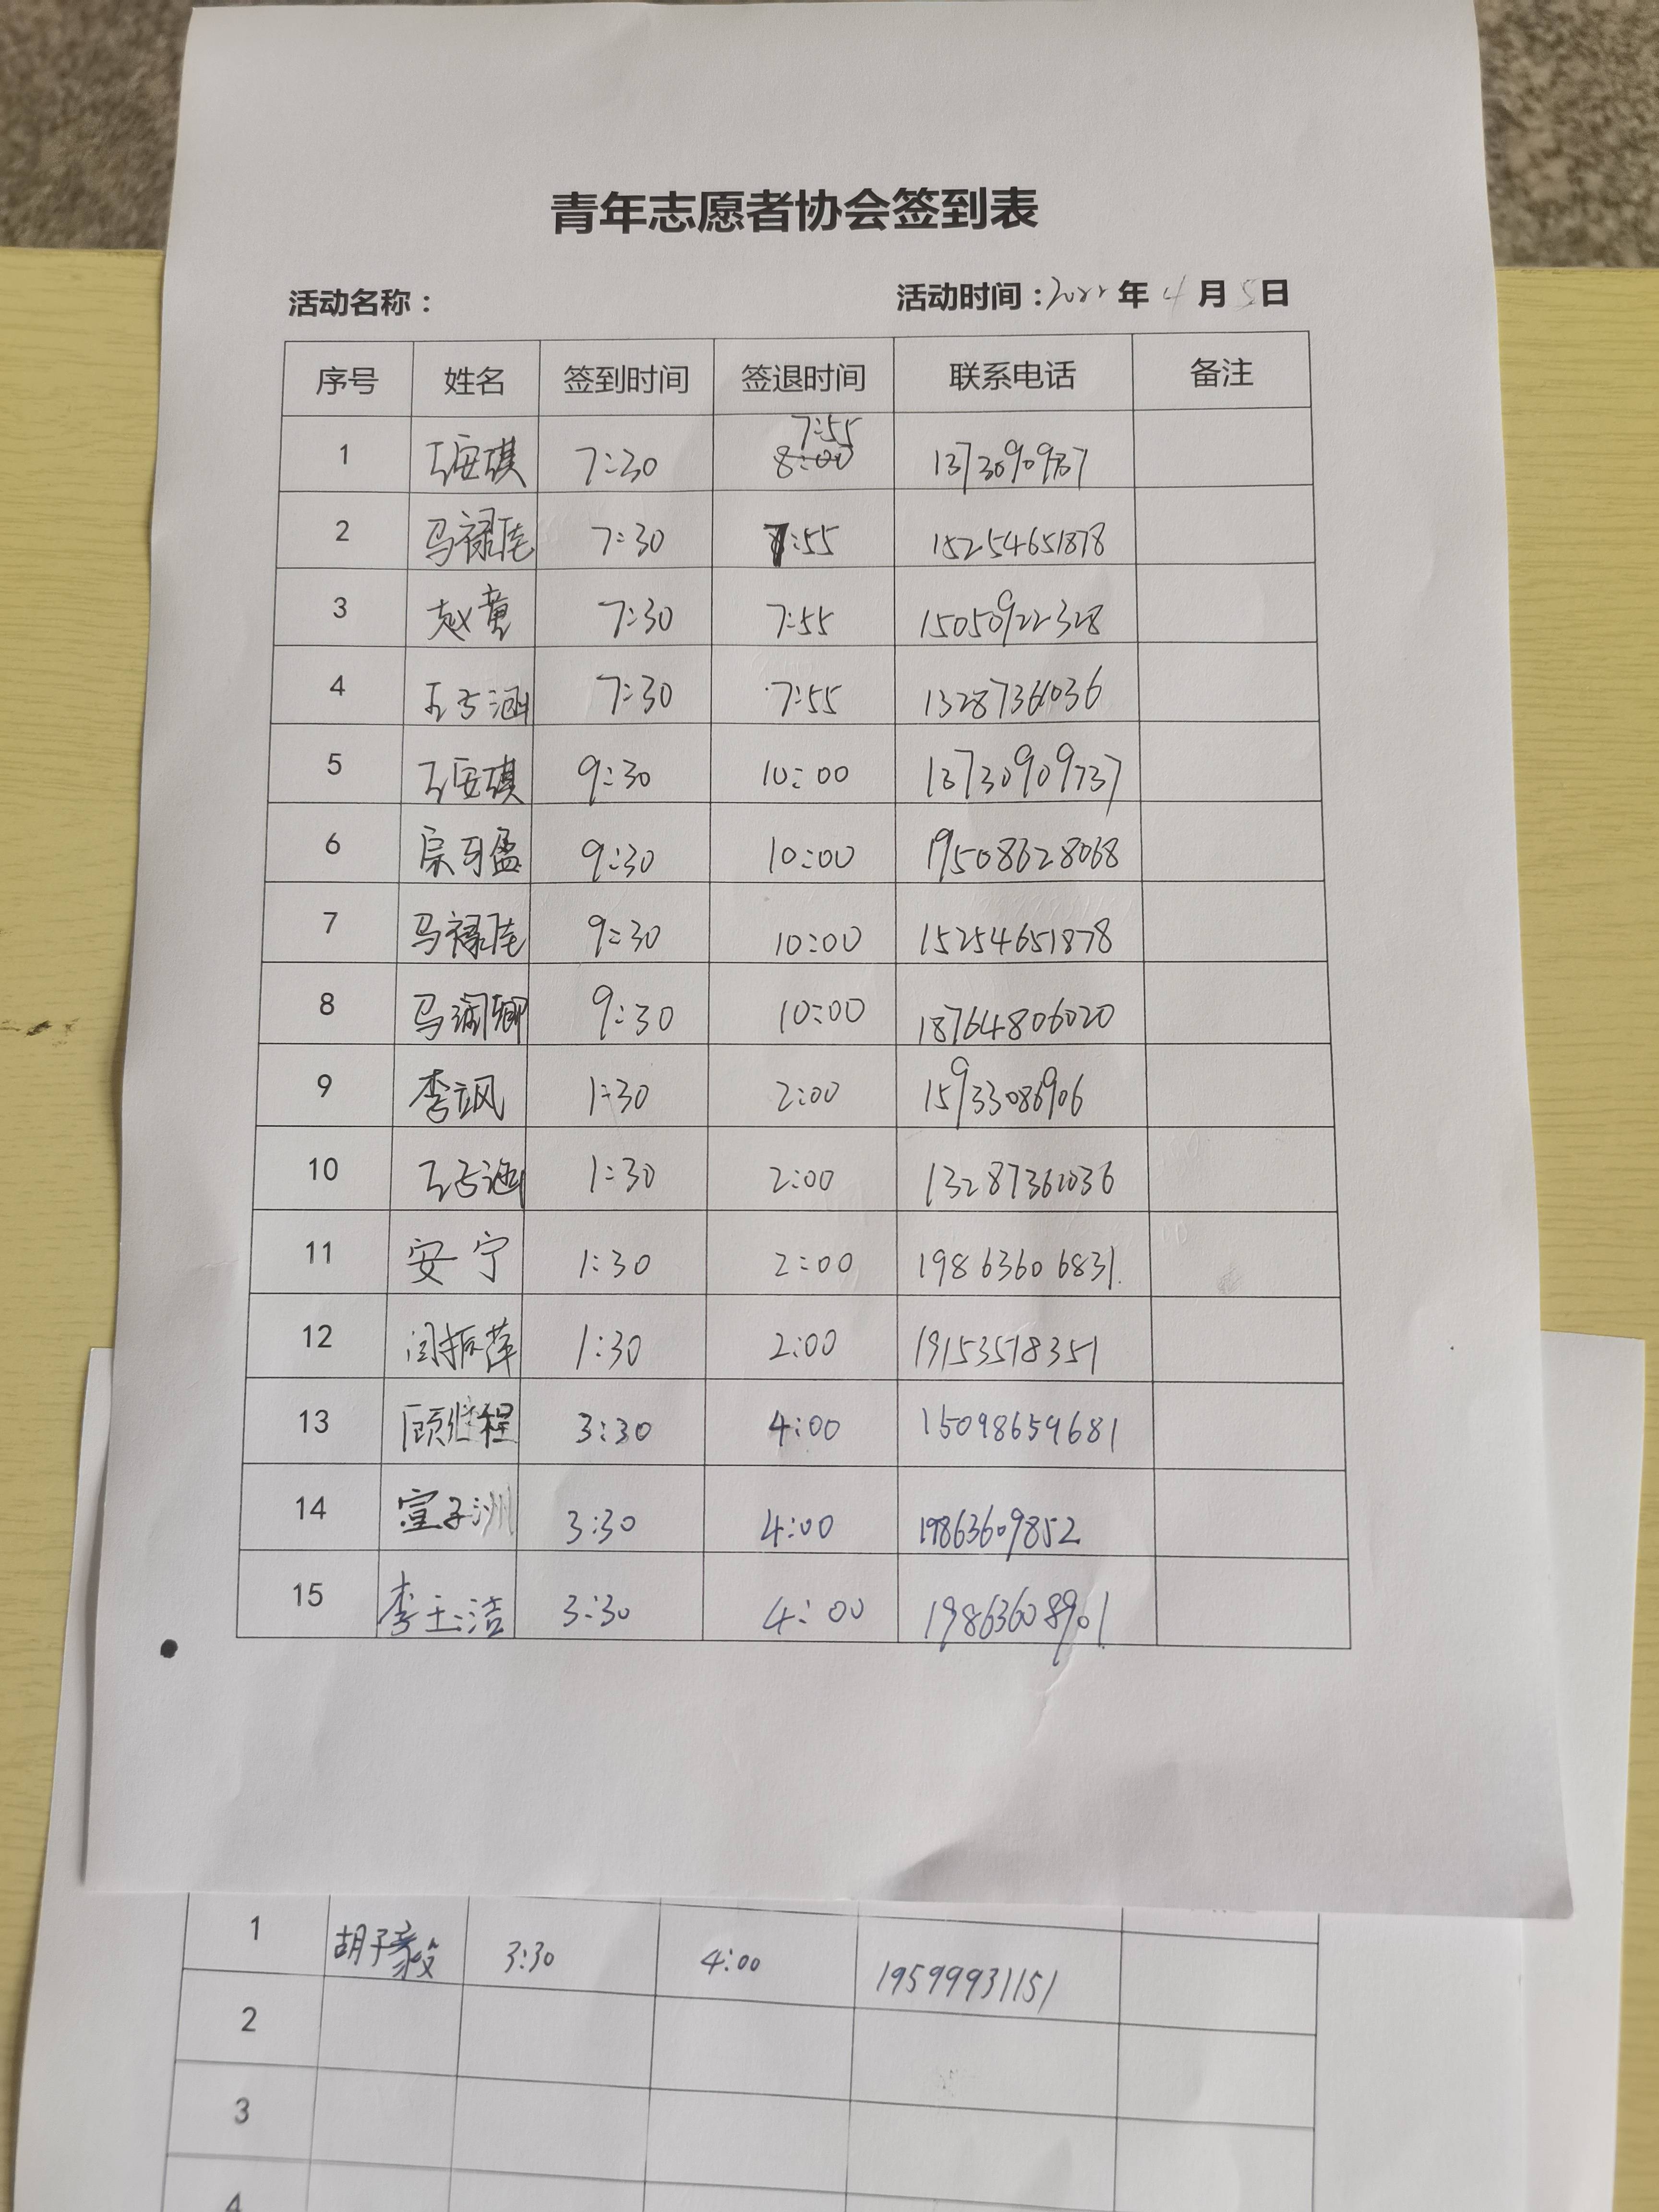 青年志愿者协会签到表
活动名称： 活动时间：2022年4月5日
序号 姓名 签到时间 签退时间 联系电话 备注
7:55
1 王安琪 7:30 8:00
2 马禄 7:30 7:55 15254651878
3 赵 7:30 7:55 15050922328
4 王子涵 7:30 7:55 13287361036
5 王安琪 9:30 10:00 13730909737
6 宗可盈 9:30 10:00 19508628068
7 马禄 9:30 10:00 15254651878
8 马 卿 9:30 10:00 18764806020
9 李飒 1:30 2:00 15933086906
10 王子涵 1:30 2:00 13287361036
11 安宁 1:30 2:00 19863606831
12 闫振萍 1:30 2:00 19153518351
13 顾 程 3:30 4:00 15098659681
14 宣子洲 3:30 4:00 19863609852
15 李玉洁 3:30 4:00 19863608901
1 胡子 3:30 4:00 19599931151
2
3
4